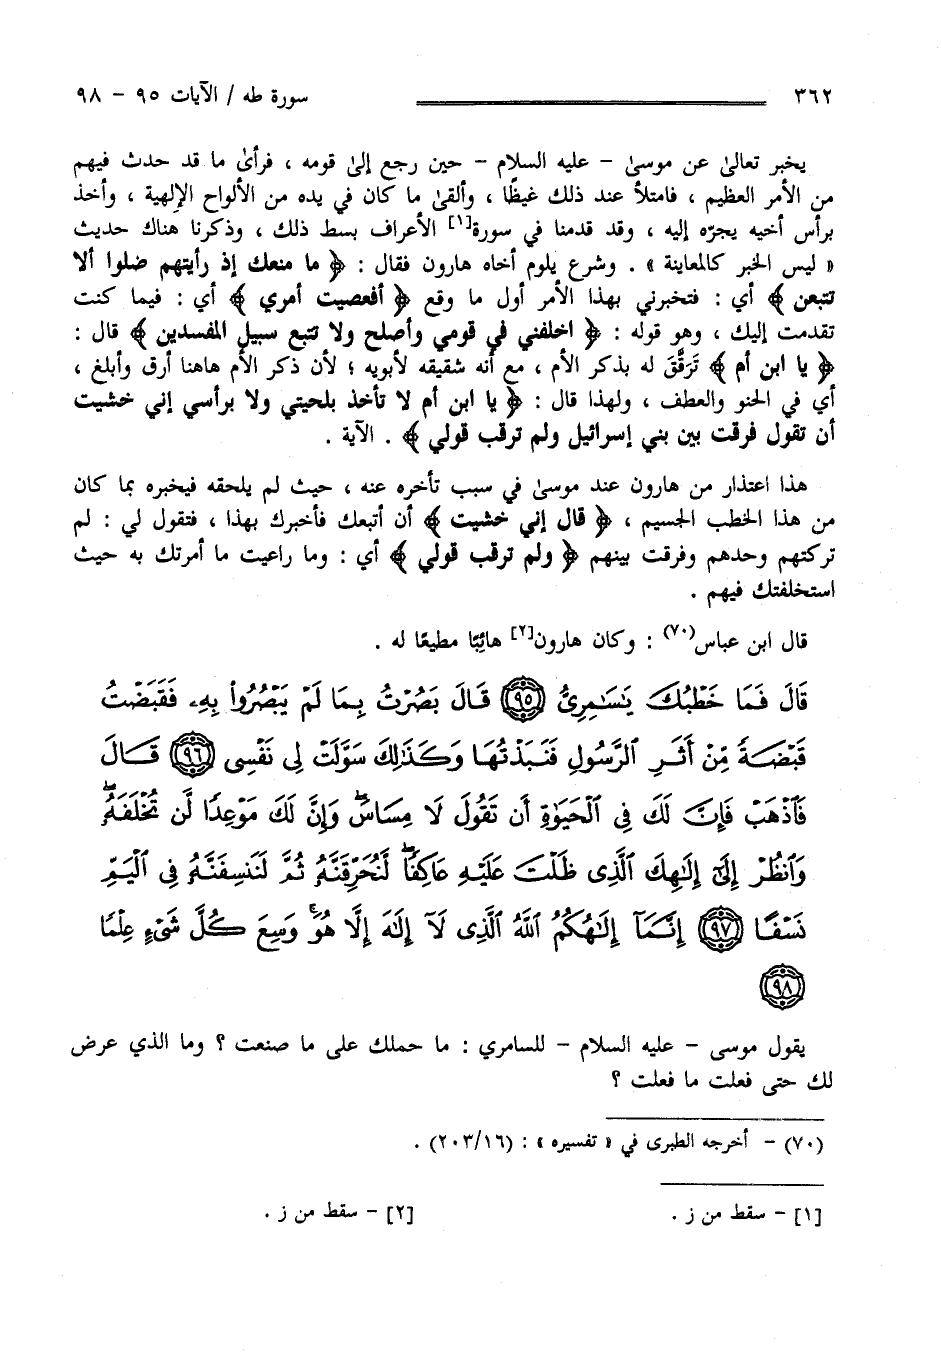 ٣٦٢ سورة طه / الآيات ٩٥ - ٩٨
يخبر تعالىٰ عن موسىٰ - عليه السلام - حين رجع إلىٰ قومه ، فرأىٰ ما قد حدث فيهم
من الأمر العظيم ، فامتلأ عند ذلك غيظًا ، وألقىٰ ما كان في يده من الألواح الإلهية ، وأخذ
برأس أخيه يجرّه إليه ، وقد قدمنا في سورة[١] الأعراف بسط ذلك ، وذكرنا هناك حديث
« ليس الخبر كالمعاينة » . وشرع يلوم أخاه هارون فقال : ﴿ ما منعك إذ رأيتهم ضلوا ألا
تتبعن ﴾ أي : فتخبرني بهذا الأمر أول ما وقع ﴿ أفعصيت أمري ﴾ أي : فيما كنت
تقدمت إليك ، وهو قوله : ﴿ اخلفني في قومي وأصلح ولا تتبع سبيل المفسدين ﴾ قال :
﴿ يا ابن أم ﴾ تَرَقَّقَ له بذكر الأم ، مع أنه شقيقه لأبويه ؛ لأن ذكر الأم هاهنا أرق وأبلغ ،
أي في الحنو والعطف ، ولهذا قال : ﴿ يا ابن أم لا تأخذ بلحيتي ولا برأسي إني خشيت
أن تقول فرقت بين بني إسرائيل ولم ترقب قولي ﴾ . الآية .
هذا اعتذار من هارون عند موسىٰ في سبب تأخره عنه ، حيث لم يلحقه فيخبره بما كان
من هذا الخطب الجسيم ، ﴿ قال إني خشيت ﴾ أن أتبعك فأخبرك بهذا ، فتقول لي : لم
تركتهم وحدهم وفرقت بينهم ﴿ ولم ترقب قولي ﴾ أي : وما راعيت ما أمرتك به حيث
استخلفتك فيهم .
قال ابن عباس(٧٠) : وكان هارون[٢] هائِبًا مطيعًا له .
قَالَ فَمَا خَطْبُكَ يَٰسَٰمِرِىُّ ٩٥ قَالَ بَصُرْتُ بِمَا لَمْ يَبْصُرُواْ بِهِۦ فَقَبَضْتُ
قَبْضَةً مِّنْ أَثَرِ ٱلرَّسُولِ فَنَبَذْتُهَا وَكَذَٰلِكَ سَوَّلَتْ لِى نَفْسِى ٩٦ قَالَ
فَٱذْهَبْ فَإِنَّ لَكَ فِى ٱلْحَيَوٰةِ أَن تَقُولَ لَا مِسَاسَۖ وَإِنَّ لَكَ مَوْعِدًا لَّن تُخْلَفَهُۥۖ
وَٱنظُرْ إِلَىٰٓ إِلَٰهِكَ ٱلَّذِى ظَلْتَ عَلَيْهِ عَاكِفًاۖ لَّنُحَرِّقَنَّهُۥ ثُمَّ لَنَنسِفَنَّهُۥ فِى ٱلْيَمِّ
نَسْفًا ٩٧ إِنَّمَآ إِلَٰهُكُمُ ٱللَّهُ ٱلَّذِى لَآ إِلَٰهَ إِلَّا هُوَۚ وَسِعَ كُلَّ شَىْءٍ عِلْمًا
٩٨
يقول موسى - عليه السلام - للسامري : ما حملك على ما صنعت ؟ وما الذي عرض
لك حتى فعلت ما فعلت ؟
(٧٠) - أخرجه الطبرى في « تفسيره » : (٢٠٣/١٦) .
[١] - سقط من ز . [٢] - سقط من ز .